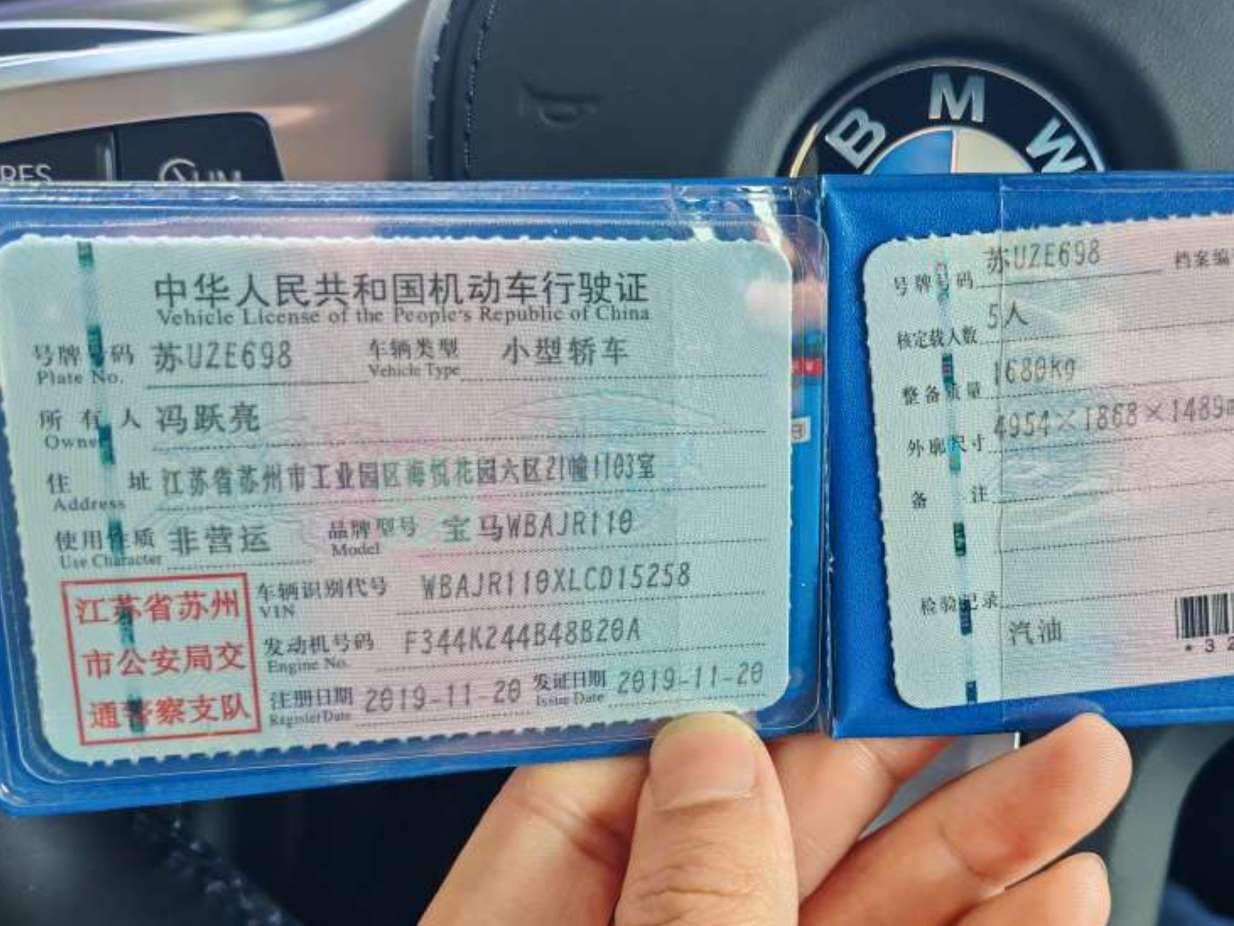 RES
BMW
中华人民共和国机动车行驶证
Vehicle License of the People's Republic of China
号牌号码 苏UZE698 车辆类型 小型轿车
Plate No. Vehicle Type
所有人 冯跃亮
Owner
住址 江苏省苏州市工业园区海悦花园六区21幢1103室
Address
使用性质 非营运 品牌型号 宝马WBAJR110
Use Character Model
江苏省苏州
市公安局交
通警察支队
车辆识别代号 WBAJR110XLCD15258
VIN
发动机号码 F344K244B48B20A
Engine No.
注册日期 2019-11-20 发证日期 2019-11-20
Register Date Issue Date
号牌号码 苏UZE698 档案编
核定载人数 5人
整备质量 1680kg
外廓尺寸 4954×1868×1489
备注
检验记录
汽油
*32